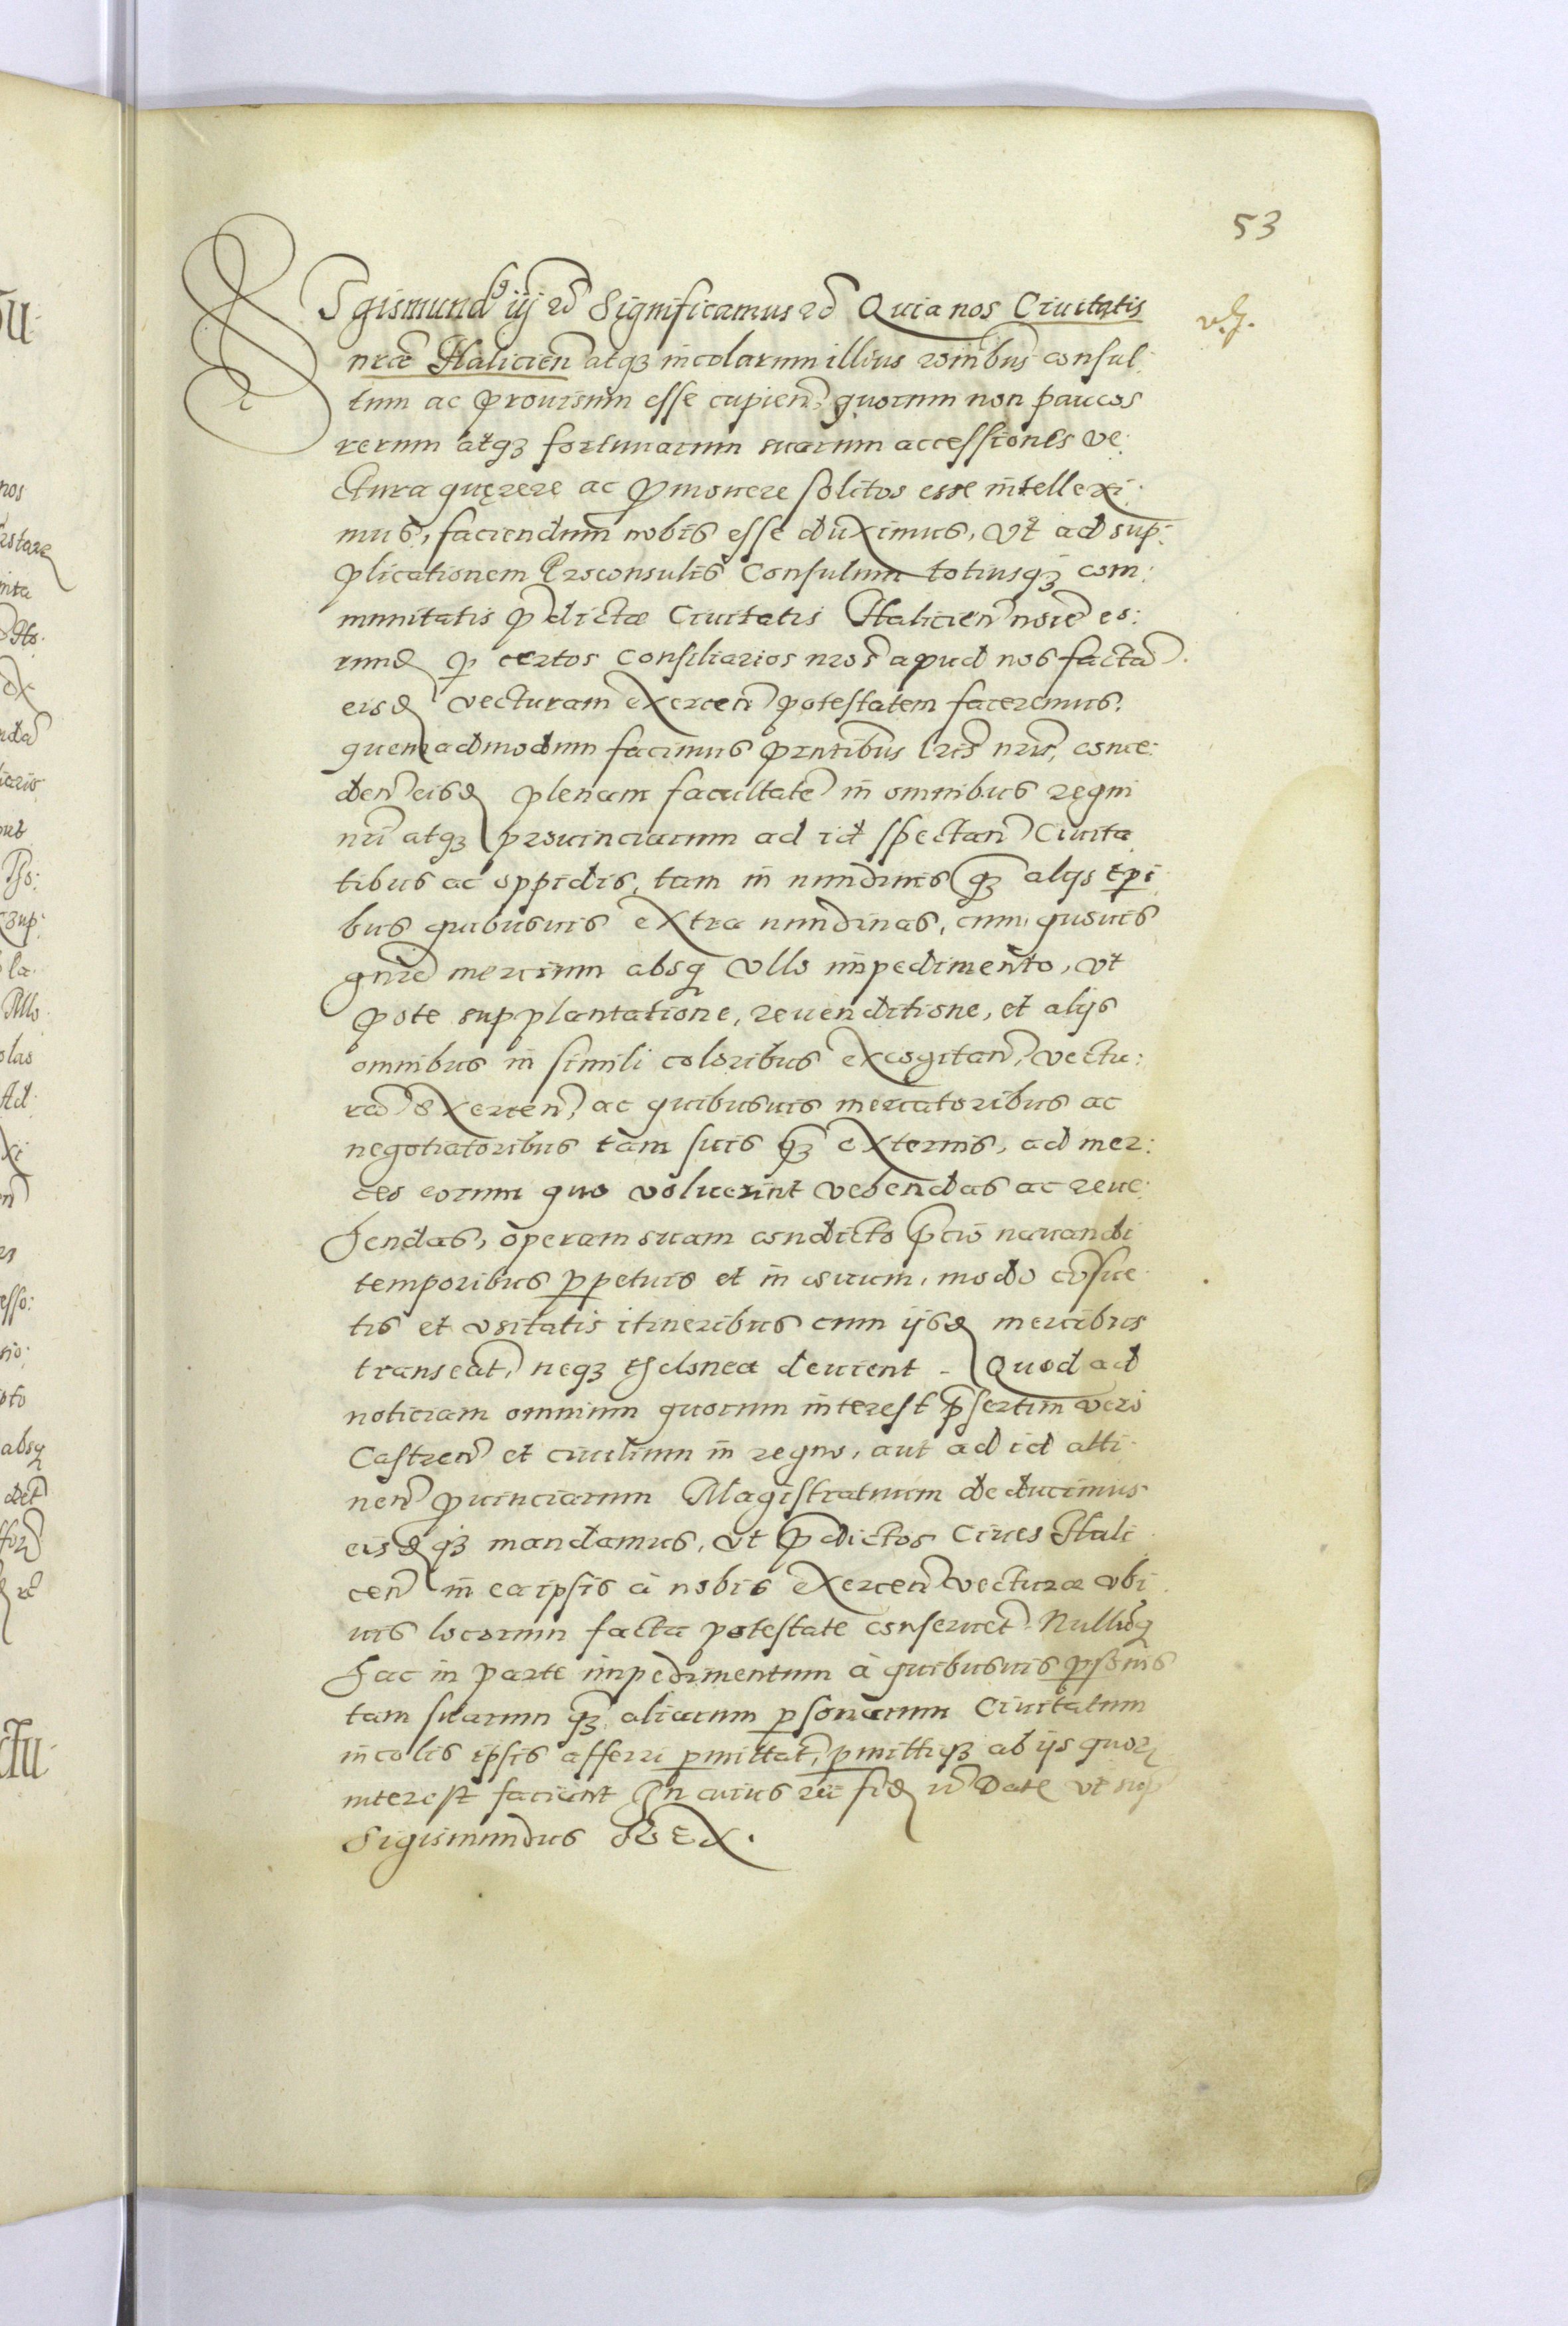 53
SIgismund⁹ iij rc̄ Significamus rc̄ Quia nos Ciuitatis
nrãe Halicien̄ atqȝ incolarum illius rōnibus consul:
tum ac prouisum esse cupien̄, quorum non paucos
rerum atqȝ fortunarum suarum accessiones ve:
ctura quęrere ac promouere solitos esse intellexi:
mus, faciendum nobis esse duximus, vt ad sup:
plicationem Proconsulis Consulum totiusqȝ com:
munitatis p̄dictæ Ciuitatis Halicien̄ noīe eo:
rund̄ ꝑ certos Consiliarios nros̄ apud nos factā.
eisd̄ vecturam exercen̄ potestatem faceremus.
quemadmodum facimus p̄ntibus lris̄ nris̄, conce:
den̄ eisd̄ plenam facultatē in omnibus regni
nri̅ atqȝ prouinciarum ad id spectan̄ Ciuita
tibus ac oppidis, tam in nundinis q̄ȝ alijs tp̄i
bus quibusuis extra nundinas, cum quouis
gn̄re mercium absqȝ vllo impedimento, vt
pote supplantatione, reuenditione, et alijs
omnibus in simili coloribus excogitan̄, vectu:
rā exercen̄, ac quibusuis mercatoribus ac
negotiatoribus tam suis q̄ȝ externis, ad mer:
ces eorum quo voluerint vehendas ac reue:
hendas, operam suam condicto p̄cio nauandi
temporibus ꝑpetuis et in æuum, modo cōsue
tis et vsitatis itineribus cum ijsd̄ mercibus
transeat̄, neqȝ thelonea deuient - Quod ad
noticiam omnium quorum interest p̄sertim vero
Castren̄ et ciuilium in regno, aut ad id atti:
nen̄ prouinciarum Magistratuum deducimus
eisd̄qȝ mandamus, vt p̄dictos Ciues Hali
cen̄ in ea ipsis à nobis exercen̄ vecturæ vbi
uis locorum facta potestate conseruet̄. Nullūqȝ
hac in parte impedimentum à quibusuis ꝑsonis
tam suarum q̄ȝ aliarum ꝑsonarum Ciuitatum
incolis ipsis afferri ꝑmittat̄, ꝑmittiqȝ ab ijs quorꝫ
interest faciant In cuius rei fid̄ rc̄ Datꝫ vt sup̄
Sigismundus REX.